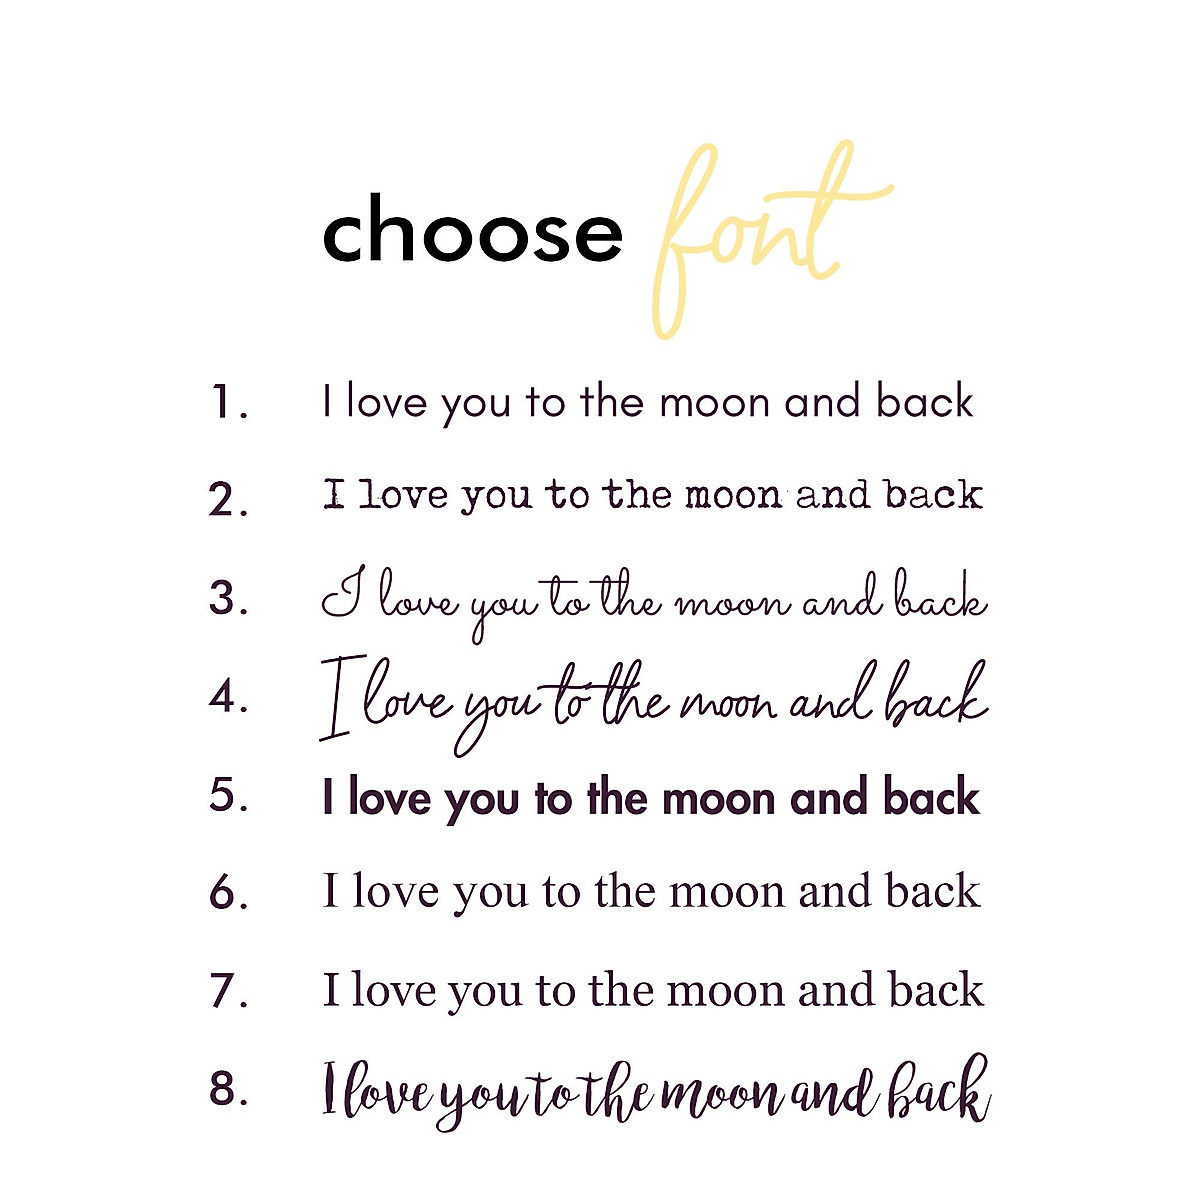 choose font
1. I love you to the moon and back
2. I love you to the moon and back
3. I love you to the moon and back
4. I love you to the moon and back
5. I love you to the moon and back
6. I love you to the moon and back
7. I love you to the moon and back
8. I love you to the moon and back